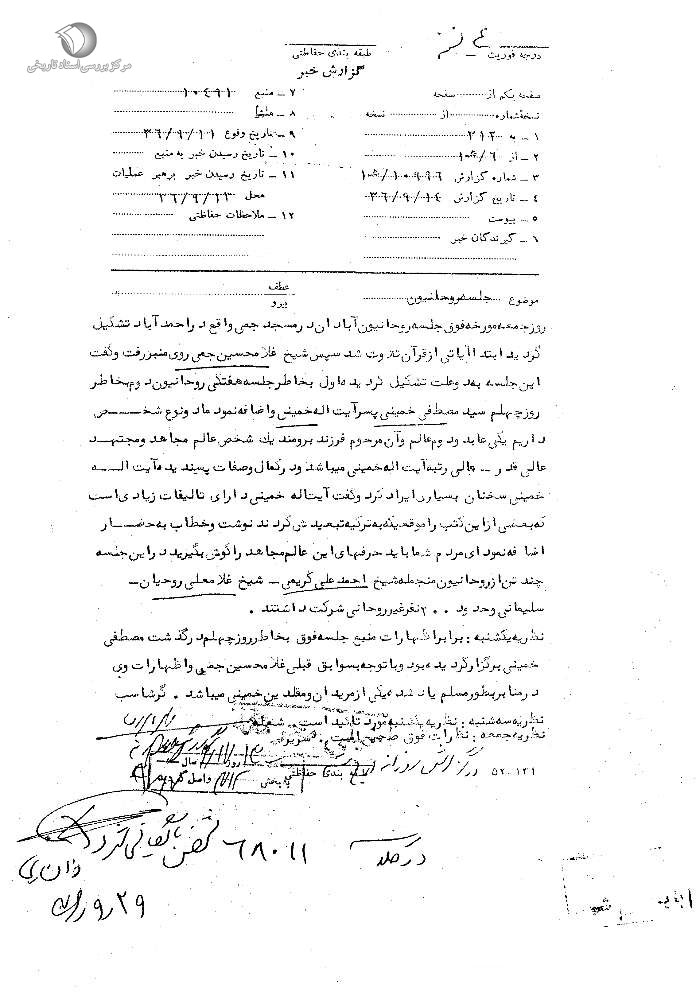 مرکز بررسی اسناد تاریخی
درجه فوریت
طبقه بندی حفاظتی
گزارش خبر
صفحه یکم از صفحه
نسخه شماره از نسخه
۱ ـ به ۳۱۲
۲ ـ از
۳ ـ شماره گزارش
۴ ـ تاریخ گزارش ۳۶/۹/۱۴
۵ ـ پیوست
۶ ـ گیرندگان خبر
۷ ـ منبع ۱۰۴۹۱
۸ ـ منشأ
۹ ـ تاریخ وقوع ۳۶/۹/۱۱
۱۰ ـ تاریخ رسیدن خبر به منبع
۱۱ ـ تاریخ رسیدن خبر برهبر عملیات
محل ۳۶/۹/۱۳
۱۲ ـ ملاحظات حفاظتی
موضوع جلسه روحانیون
عطف
پیرو
روز جمعه مورخه فوق جلسه روحانیون آبادان در مسجد جمی واقع در احمد آباد تشکیل
گردید ابتدا آیاتی از قرآن تلاوت شد سپس شیخ غلامحسین جمی روی منبر رفت و گفت
این جلسه بدو علت تشکیل گردیده اول بخاطر جلسه هفتگی روحانیون دوم بخاطر
روز چهلم سید مصطفی خمینی پسر آیت اله خمینی و اضافه نمود ما دو نوع شخص
داریم یکی عابد و دوم عالم و آن مرحوم فرزند برومند یک شخص عالم مجاهد و مجتهد
عالی قدر ـ عالی رتبه آیت اله خمینی میباشد و در کمال وصفات پسندیده آیت الله
خمینی سخنان بسیاری ایراد کرد و گفت آیت اله خمینی دارای تالیفات زیادی است
که بعضی از این کتب را موقعیکه به ترکیه تبعیدش کردند نوشت و خطاب به حضار
اضافه نمود ای مردم شما باید حرفهای این عالم مجاهد را گوش بگیرید در این جلسه
چند تن از روحانیون منجمله شیخ احمد علی کریمی ـ شیخ غلامعلی روحیان ـ
سلیمانی و حدود ۲۰۰ نفر غیر روحانی شرکت داشتند .
نظریه یکشنبه : برابر اظهارات منبع جلسه فوق بخاطر روز چهلم درگذشت مصطفی
خمینی برگزار گردیده بود و با توجه بسوابق قبلی غلامحسین جمی و اظهارات وی
در منابر بطور مسلم یاد شده یکی از مریدان و مقلدین خمینی میباشد . گرشاسب
نظریه سه شنبه : نظریه یکشنبه مورد تائید است .
نظریه جمعه : نظرات فوق صحیح است .
۵۲۰۱۳۱ در گزارش روزانه
طبقه بندی حفاظتی
در کلاسه ۶۸۰۱۱